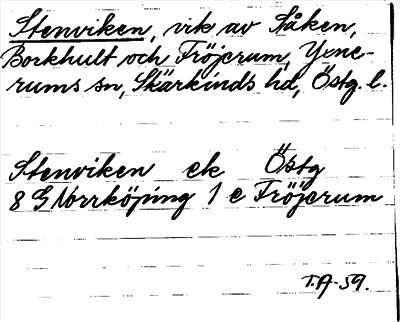 Stenviken, vik av Såken,
Borkhult och Fröjerum, Yxne-
rums sn, Skärkinds hd, Östg. l.
Stenviken ek Östg
8 G Norrköping 1 e Fröjerum
T.A-59.